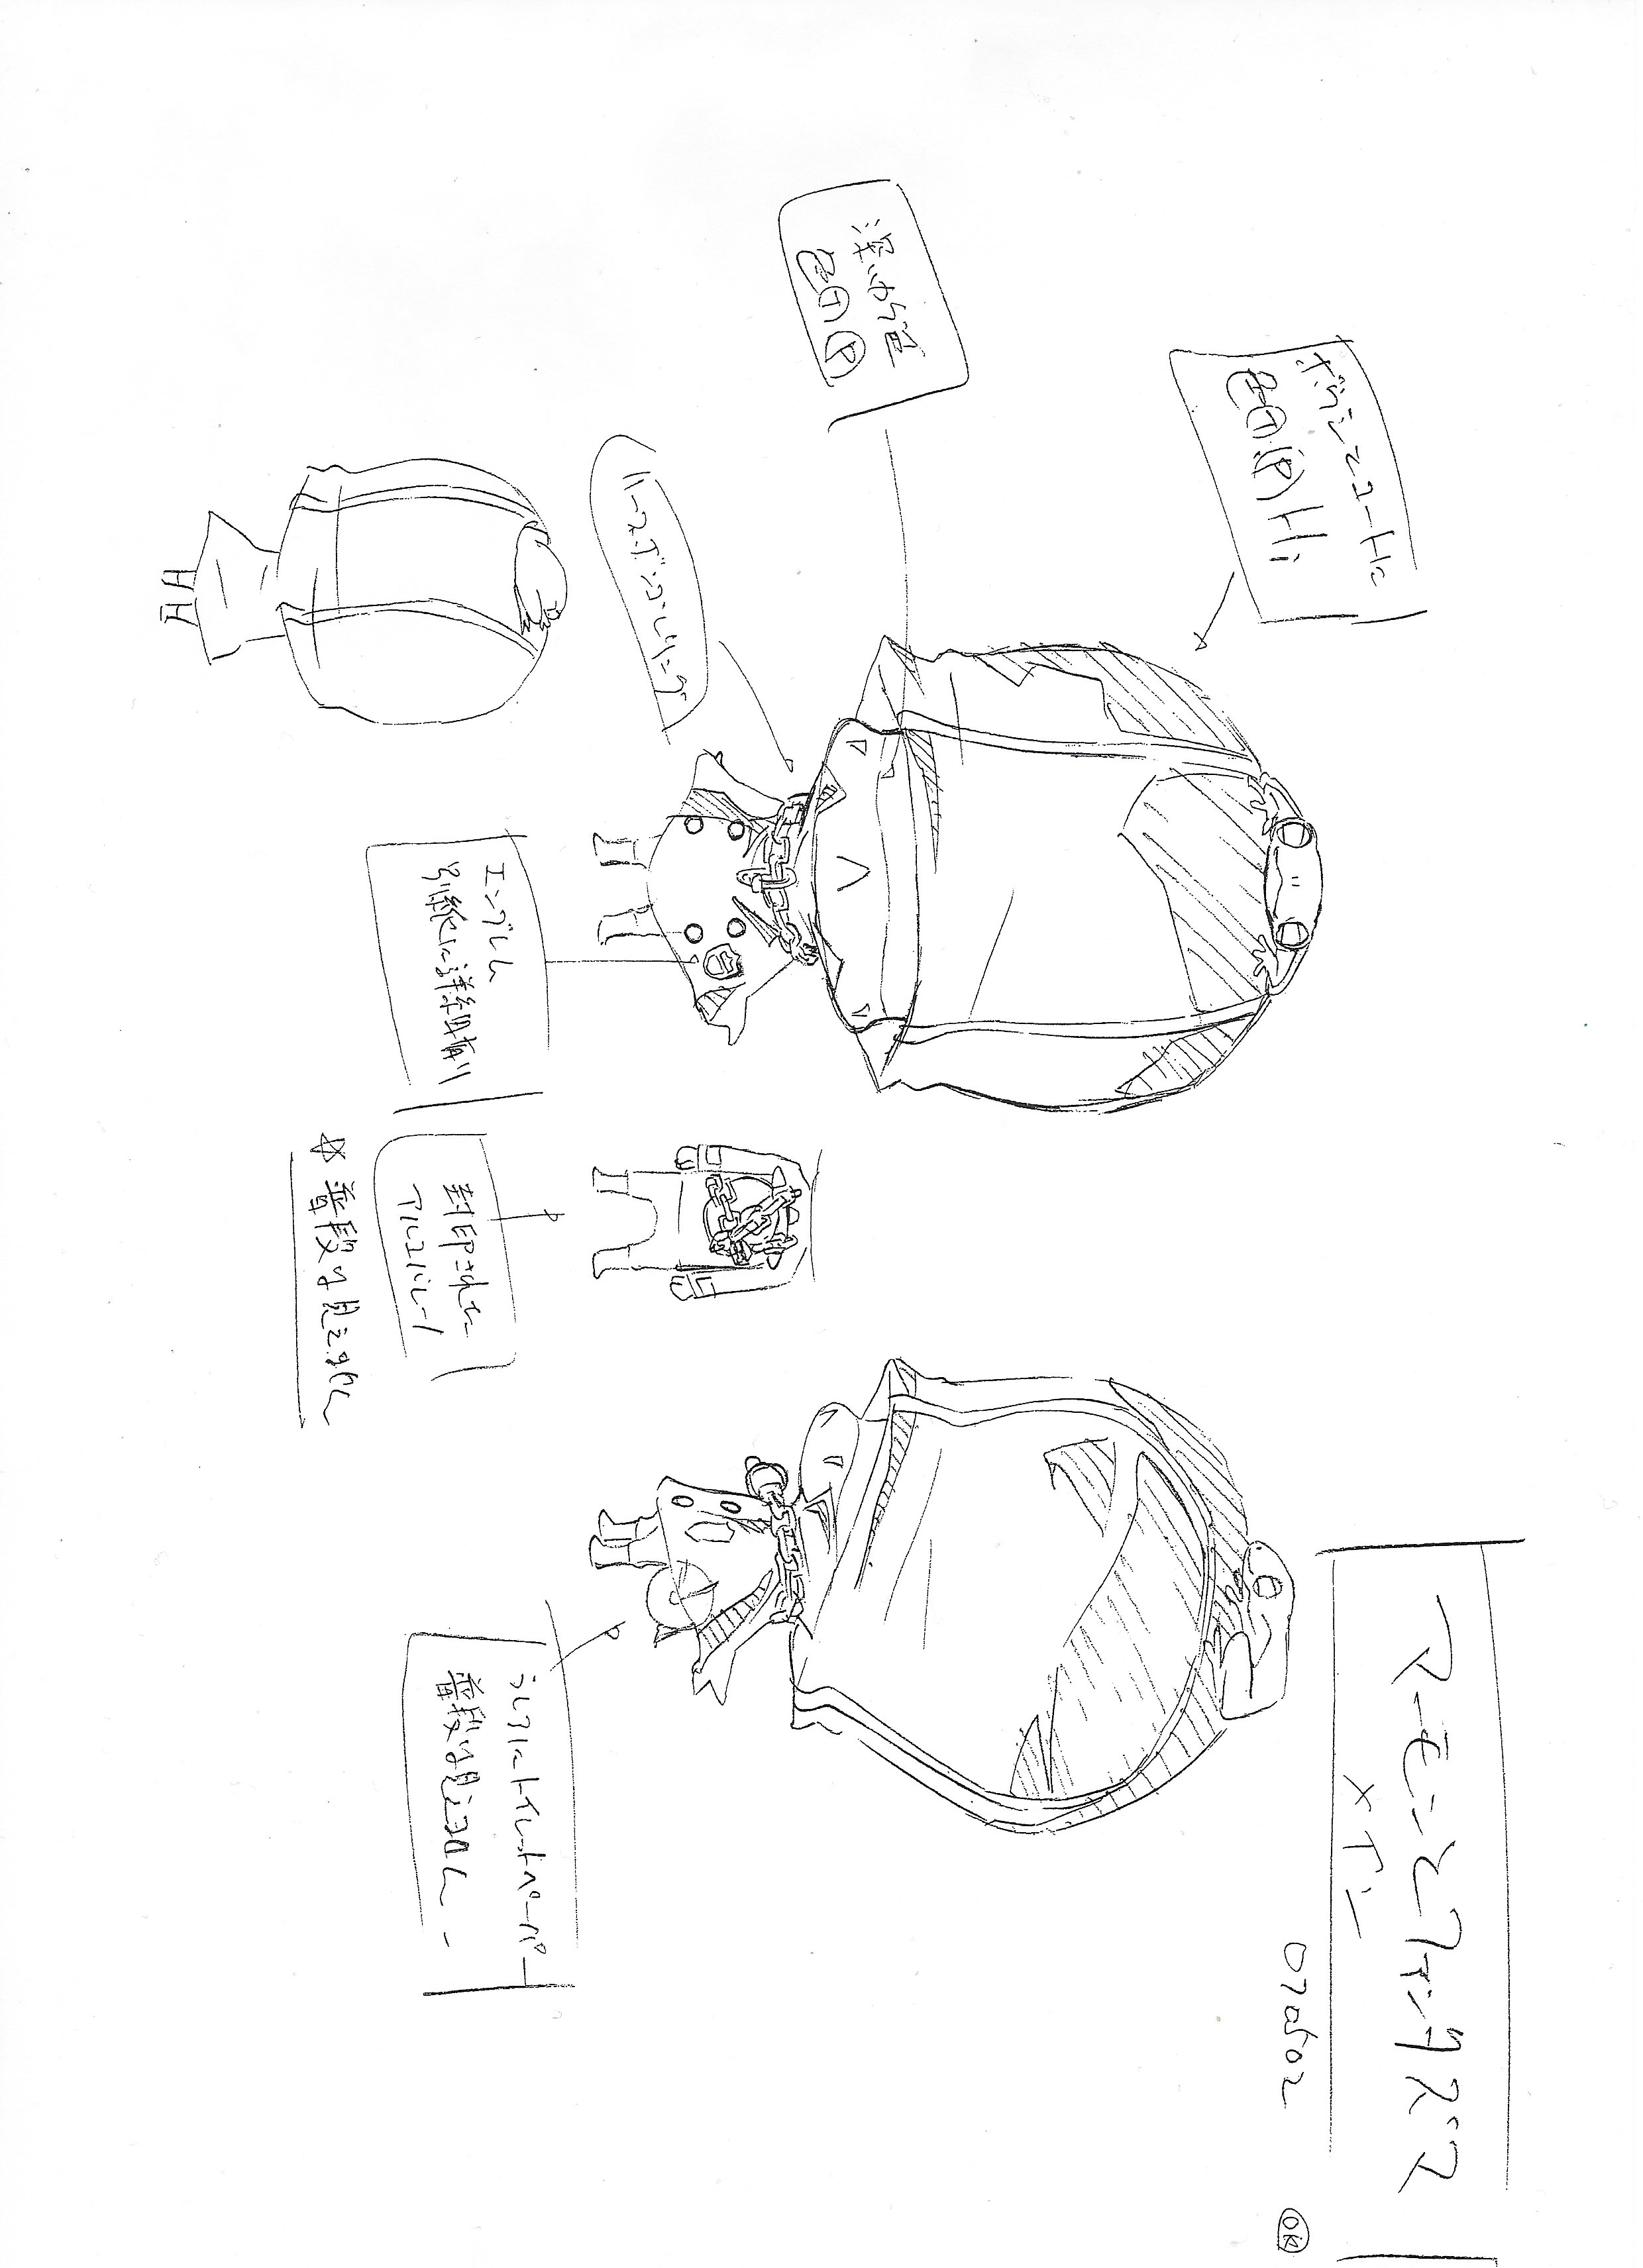 マーモンとファンタズマ
メイン
070502
OK
ボウシとコートに
色Ⓣ.Ⓟ Hi
深いカゲ色
色ⓉⓅ
ハーフボンゴレリング
エンブレム
別紙に詳細有り
封印された
アルコバレーノ
普段は見えません
うしろにトイレットペーパー
普段は見えません